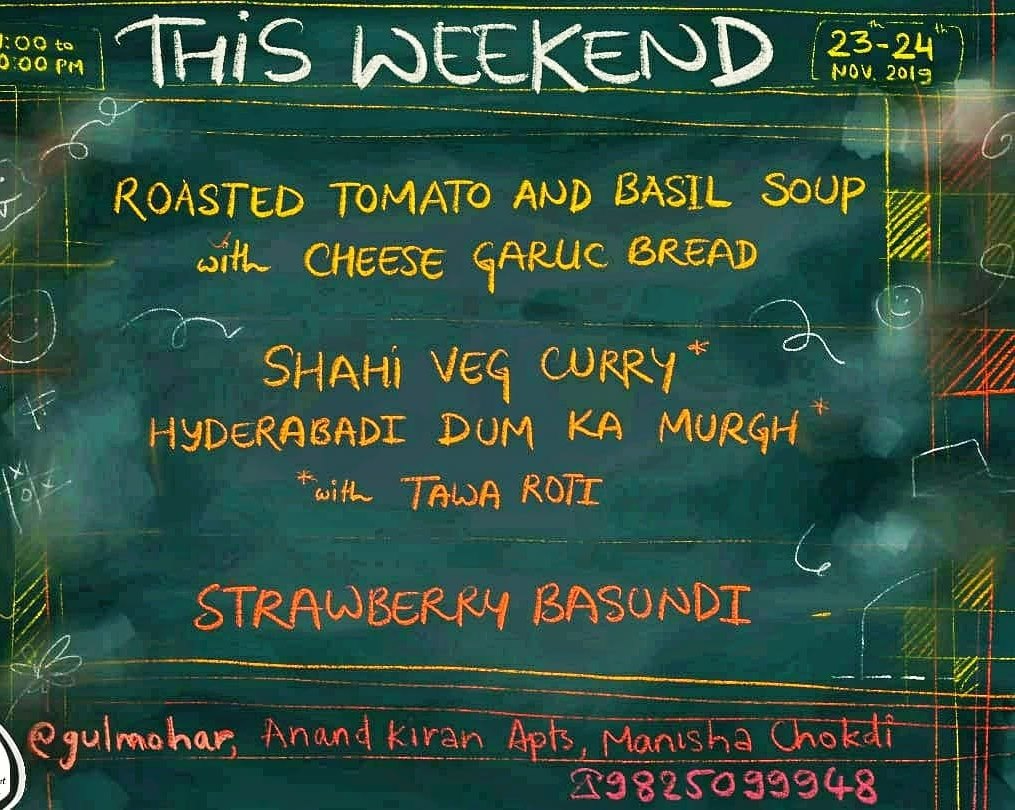 :00 to
0:00 PM
THiS WEEKEND
23th-24th
NOV. 2019
ROASTED TOMATO AND BASIL SOUP
with CHEESE GARLIC BREAD
SHAHi VEG CURRY*
HYDERABADI DUM KA MURGH*
*with TAWA ROTI
STRAWBERRY BASUNDI
@gulmohar, Anand Kiran Apts, Manisha Chokdi
☎9825099948